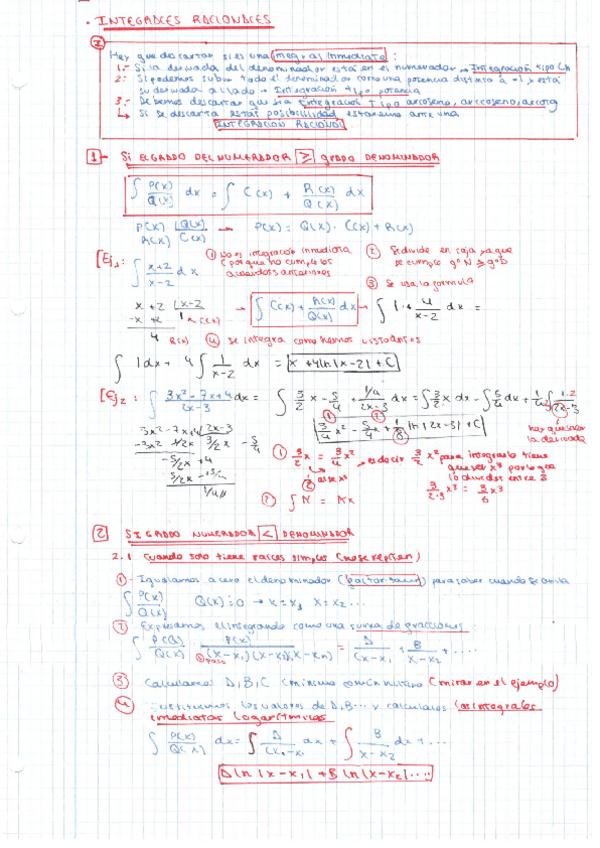 · INTEGRALES RACIONALES
Hay que descartar si es una integral inmediata:
1.- Si la derivada del denominador está en el numerador → Integración tipo Ln
2.- Si podemos subir todo el denominador como una potencia distinta a -1 y está
su derivada al lado → Integración tipo potencia
3.- Debemos descartar que sea integración tipo arcoseno, arccoseno, arcotg
↳ Si se descarta esta posibilidad estaremos ante una
INTEGRACION RACIONAL
1- Si EL GRADO DEL NUMERADOR ≥ grado DENOMINADOR
∫ P(x)/Q(x) dx = ∫ C(x) + R(x)/Q(x) dx
P(x) |Q(x) → P(x) = Q(x) · C(x) + R(x)
R(x) C(x)
[Ej1: ∫ x+2/x-2 dx
① No es integración inmediata
porque no cumple los
② Se divide en caja ya que
se cumple gº N ≥ gº D
③ Se usa la formula
x + 2 |x-2
-x + 2 1 → C(x)
4 R(x)
→ ∫ C(x) + R(x)/Q(x) dx → ∫ 1 + 4/x-2 dx =
④ Se integra como hemos visto antes
∫ 1dx + 4 ∫ 1/x-2 dx = x + 4ln|x-2| + C
[Ej2: ∫ 3x²-7x+4/2x-3 dx = ∫ 3/2 x - 5/4 + 1/4/2x-3 dx = ∫ 3/2 x dx - ∫ 5/4 dx + 1/4 ∫ 1·2/2x-3
3/4 x² - 5/4 + 1/8 ln|2x-3| + C
hay que sacar
la derivada
3x²-7x+4 |2x-3
3/2 x - 5/4
-5/2x + 4
1/4
① 3/2 x = 3/4 x²
→ es decir 3/2 x² para integrarlo tiene
que ser x³ por lo que
lo divides entre 3
3/2·3 x³ = 3/6 x³
② ∫ N = Nx
2 SI GRADO NUMERADOR < DENOMINADOR
2.1 Cuando solo tiene raíces simples (no se repiten)
① Igualamos a cero el denominador (factorizamos) para saber cuando se anula
∫ P(x)/Q(x) Q(x) = 0 → x = x1 x = x2 ...
② Expresamos el integrando como una suma de fracciones:
∫ P(x)/Q(x) P(x)/(x-x1)(x-x2)(x-xn) = A/(x-x1 + B/x-x2 + ....
① paso
③ Calculamos A, B, C (mínimo común múltiplo (mirar en el ejemplo)
④ Sustituimos los valores de A, B... y calculamos las integrales
inmediatas logarítmicas
∫ P(x)/Q(x) dx = ∫ A/(x-x1 dx + ∫ B/x-x2 dx + ...
A ln |x-x1| + B ln |x-x2| ....